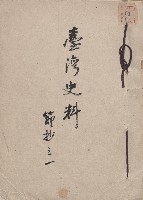 臺灣史料
節抄之一